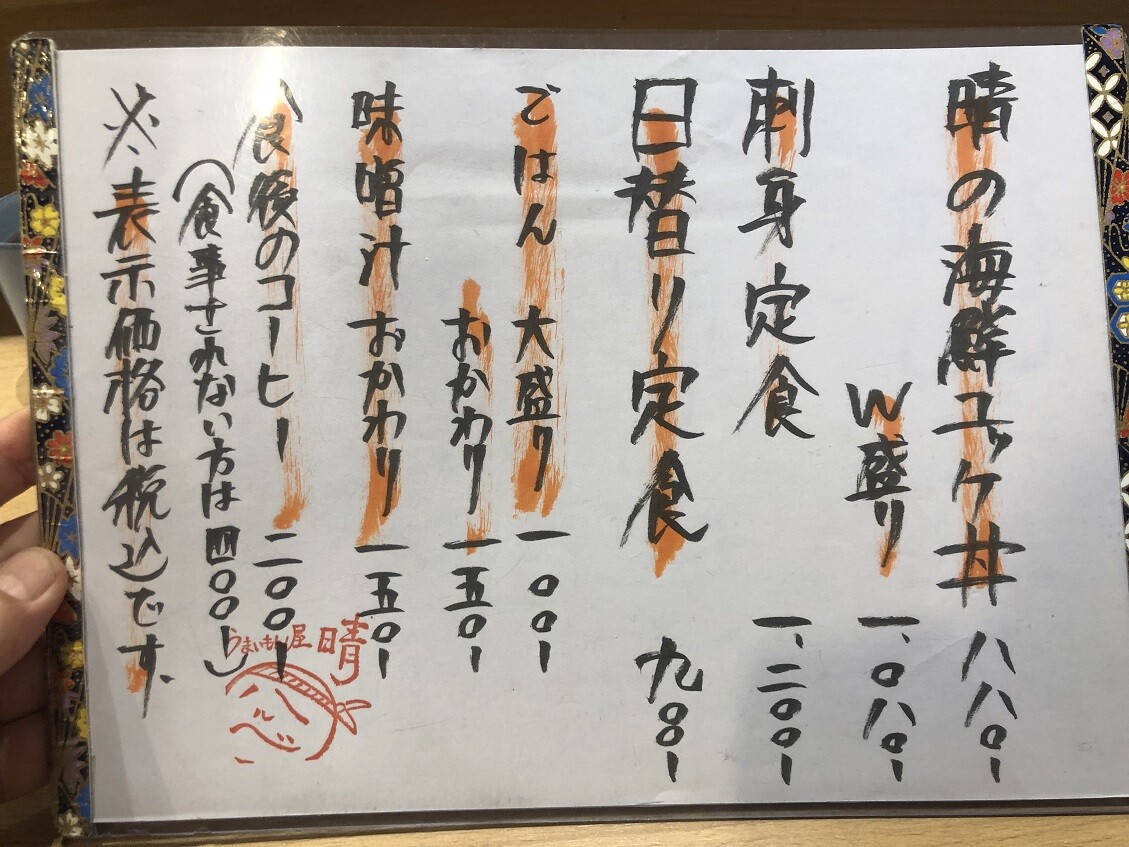 晴の海鮮ユッケ丼 八八〇ー
W盛り 一、〇八〇ー
刺身定食 一、二〇〇ー
日替り定食 九〇〇ー
ごはん 大盛り 一〇〇ー
おかわり 一五〇ー
味噌汁 おかわり 一五〇ー
食後のコーヒー 二〇〇ー
（食事されない方は四〇〇ー）
※表示価格は税込です。
うまいもん屋 晴